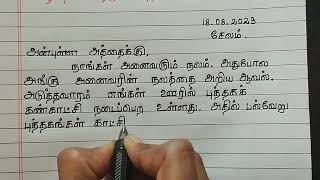 18.08.2023
சேலம்.
அன்புள்ள அத்தைக்கு,
நாங்கள் அனைவரும் நலம். அதுபோல
அங்கு அனைவரின் நலத்தை அறிய ஆவல்.
அடுத்தவாரம் எங்கள் ஊரில் புத்தகக்
கண்காட்சி நடைபெற உள்ளது. அதில் பல்வேறு
புத்தகங்கள் காட்சி